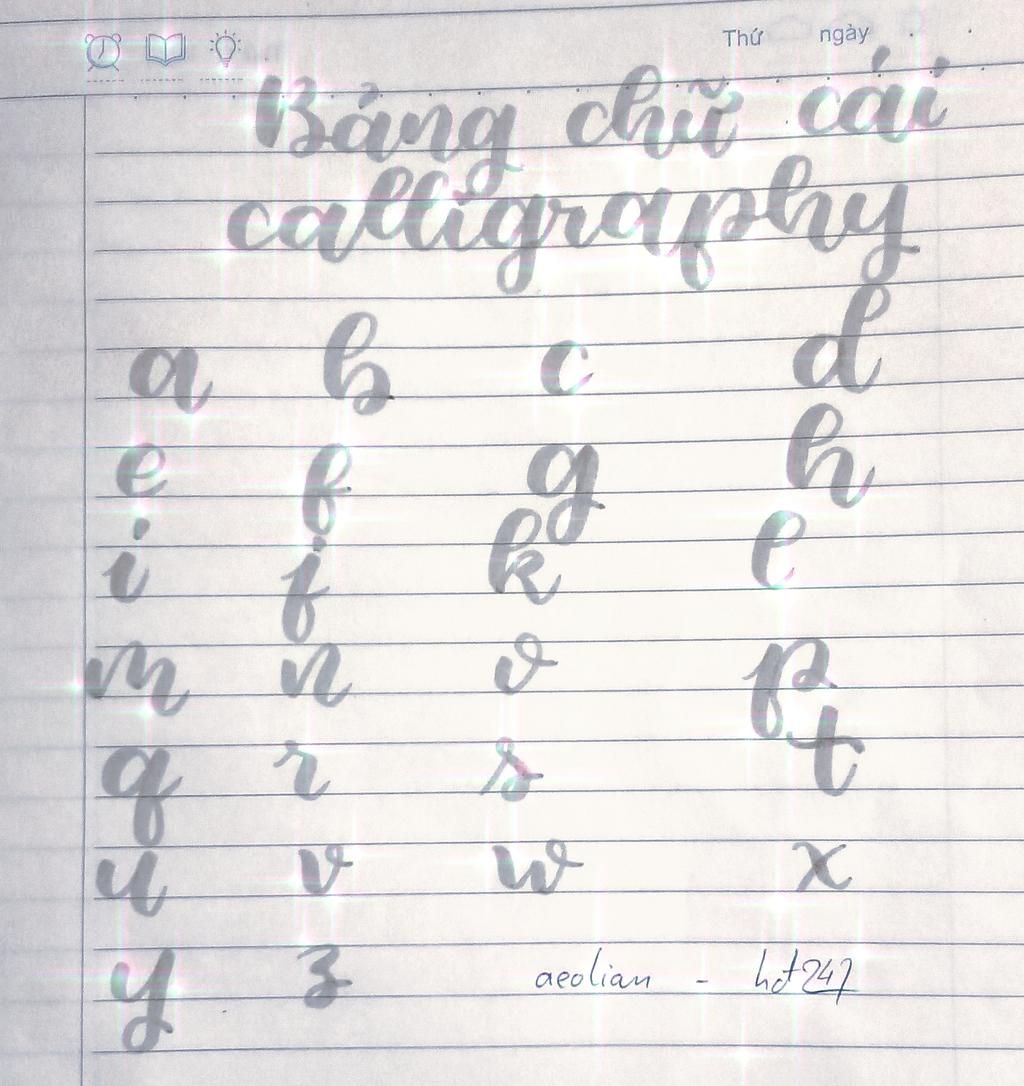 Thứ ngày
Bảng chữ cái
calligraphy
a b c d
e f g h
i j k l
m n o p
q r s t
u v w x
y z aeolian - hdt247